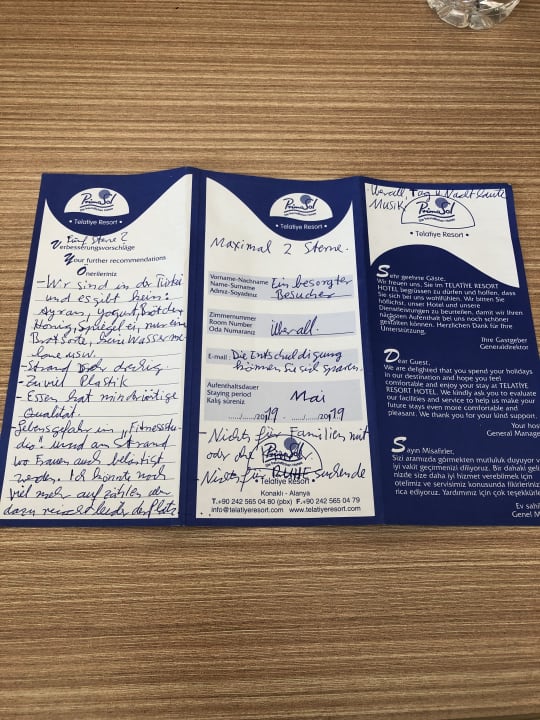 PrimaSol
• Telatiye Resort •
Fünf Sterne?
Verbesserungsvorschläge
Your further recommendations
Önerileriniz
- Wir sind in der Türkei
und es gibt kein:
Ayran, Yogurt,
Honig, Spiegelei, nur ein
Brotsorte, kein Wasserme-
lone usw.
- Strand sehr dreckig
- Zu viel Plastik
- Essen hat minderwertige
Qualität.
- Lebensgefahr im „Fitnesstu-
dio" und am Strand
wo Frauen auch belästigt
werden. Ich könnte noch
viel mehr aufzählen aber
dazu reicht leider der Platz
PrimaSol
• Telatiye Resort •
Maximal 2 Sterne.
Vorname-Nachname
Name-Surname
Adınız-Soyadınız
Ein besorgter
Besucher
Zimmernummer
Room Number
Oda Numaranız
Überall.
E-mail
Die Entschuldigung
können Sie sich sparen.
Aufenthaltsdauer
Staying period
Kalış süreniz
Mai
...../...../2019 ...../...../2019
- Nichts für Familien mit
oder
Nichts für RUHE suchende
• Telatiye Resort •
Konaklı - Alanya
T.+90 242 565 04 80 (pbx) F.+90 242 565 04 79
info@telatiyeresort.com www.telatiyeresort.com
Überall, Tag u Nacht laute
Musik,
PrimaSol
• Telatiye Resort •
Sehr geehrte Gäste,
Wir freuen uns, Sie im TELATİYE RESORT
HOTEL begrüssen zu dürfen und hoffen, dass
Sie sich bei uns wohlfühlen. Wir bitten Sie
höflichst, unser Hotel und unsere
Dienstleistungen zu beurteilen, damit wir Ihren
nächsten Aufenthalt bei uns noch schöner
gestalten können. Herzlichen Dank für Ihre
Unterstützung.
Ihre Gastgeber
Generaldirektor
Dear Guest,
We are delighted that you spend your holidays
in our destination and hope you feel
comfortable and enjoy your stay at TELATİYE
RESORT HOTEL. We kindly ask you to evaluate
our facilities and service to help us make your
future stays even more comfortable and
pleasant. We thank you for your kind support.
Your host
General Manager
Sayın Misafirler,
Sizi aramızda görmekten mutluluk duyuyor v
iyi vakit geçirmenizi diliyoruz. Bir dahaki geli
nizde size daha iyi hizmet verebilmek için
otelimiz ve servisimiz konusunda fikirleriniz
rica ediyoruz. Yardımınız için çok teşekkürle
Ev sahi
Genel M